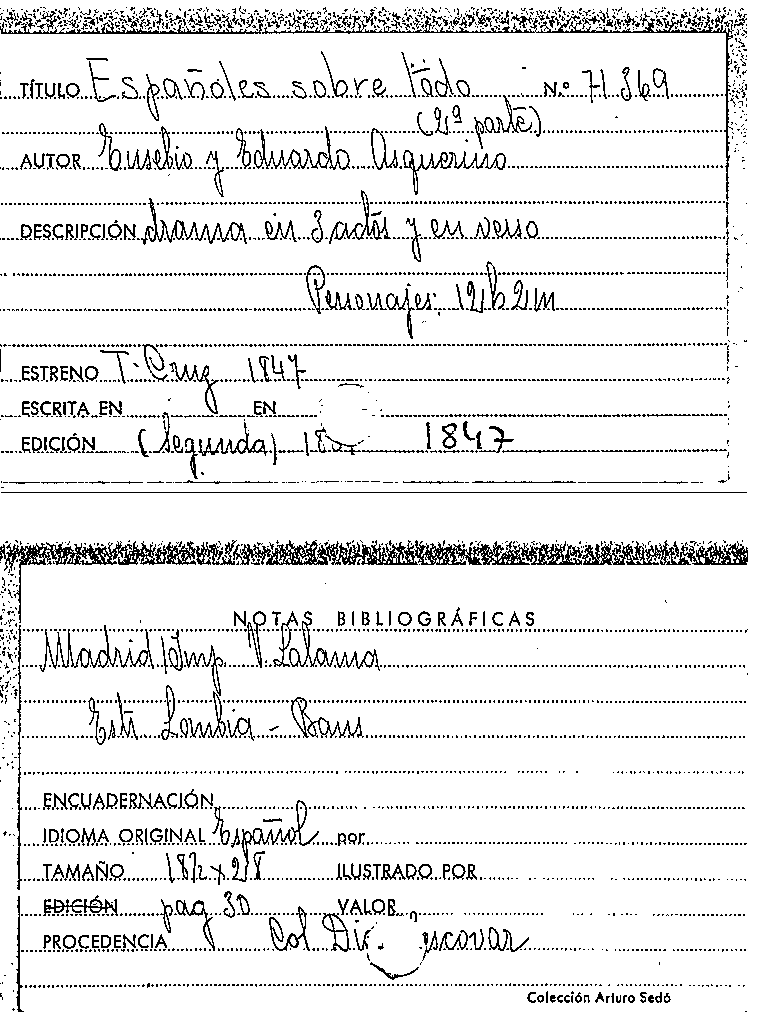 TÍTULO Españoles sobre todo N.º 71369
(2ª parte)
AUTOR Eusebio y Eduardo Asquerino
DESCRIPCIÓN drama en 3 actos y en verso
Personajes: 12h 2m
ESTRENO T. Cruz 1847
ESCRITA EN EN
EDICIÓN (Segunda) 1847
NOTAS BIBLIOGRÁFICAS
Madrid Imp V. Lalama
Estr Lombia - Baus
ENCUADERNACIÓN
IDIOMA ORIGINAL Español por
TAMAÑO ILUSTRADO POR
EDICIÓN pag 30 VALOR
PROCEDENCIA Col
Colección Arturo Sedó